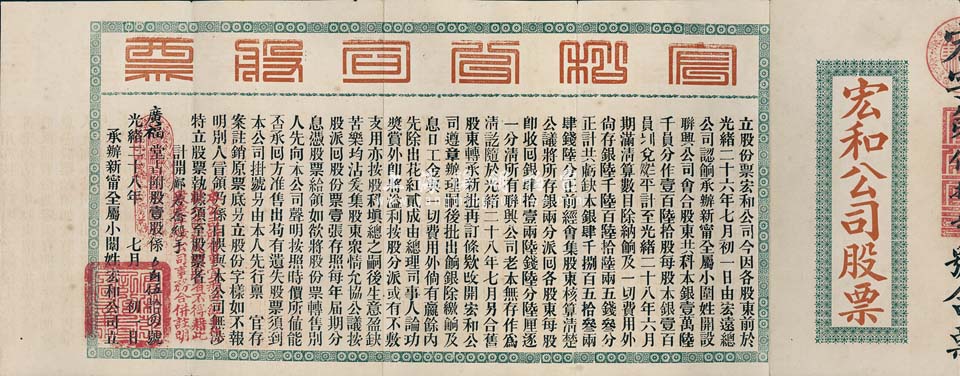 宏和公司股票
宏和公司股票
立股份票宏和公司今因各股東前於
光緒二十六年七月初一日由宏遠總
公司認餉承辦新甯全屬小圍姓開設
聯興公司會合股東共科本銀壹萬陸
千員分作壹百陸拾股每股本銀壹百
員兌平計至光緒二十八年六月
期滿清算數目除納餉及一切費用外
尚存銀陸千陸百陸拾陸兩五錢叁分
正計共虧缺本銀肆千捌百五拾叁兩
肆錢陸分正前經會集股東核算清楚
公議將所存銀兩分派回各股東每股
即收回銀肆拾壹兩陸錢陸分陸厘逐
一分清所有聯興公司老本無存作為
清訖隨於光緒二十八年七月另合舊
股東轉承新批再訂條欵改開宏和公
司遵章辦理嗣後批出餉銀除繳餉及
息口工金一切費用外倘有贏餘內
先除出花紅貳成由總理司事人論功
獎賞外即將溢利按股分派或有不敷
支用亦按股科填總之嗣後生意盈缺
苦樂均沾爰集股東衆情允協公議按
股派回股份票壹張存照每年屆期分
息憑股票給領如欲將股份票轉售別
人先向本公司聲明按照時價所值能
否承回方准售出倘有遺失股票須到
本公司掛號另由本人先行票官存
案註銷原票方底另立股份字樣如不報
明別人冒領乃係自悞與本公司無涉
特立股票執據須至股票者
計開
廣福堂占附股壹股係
光緒二十八年七月初一日
承辦新甯全屬小闈姓宏和公司五